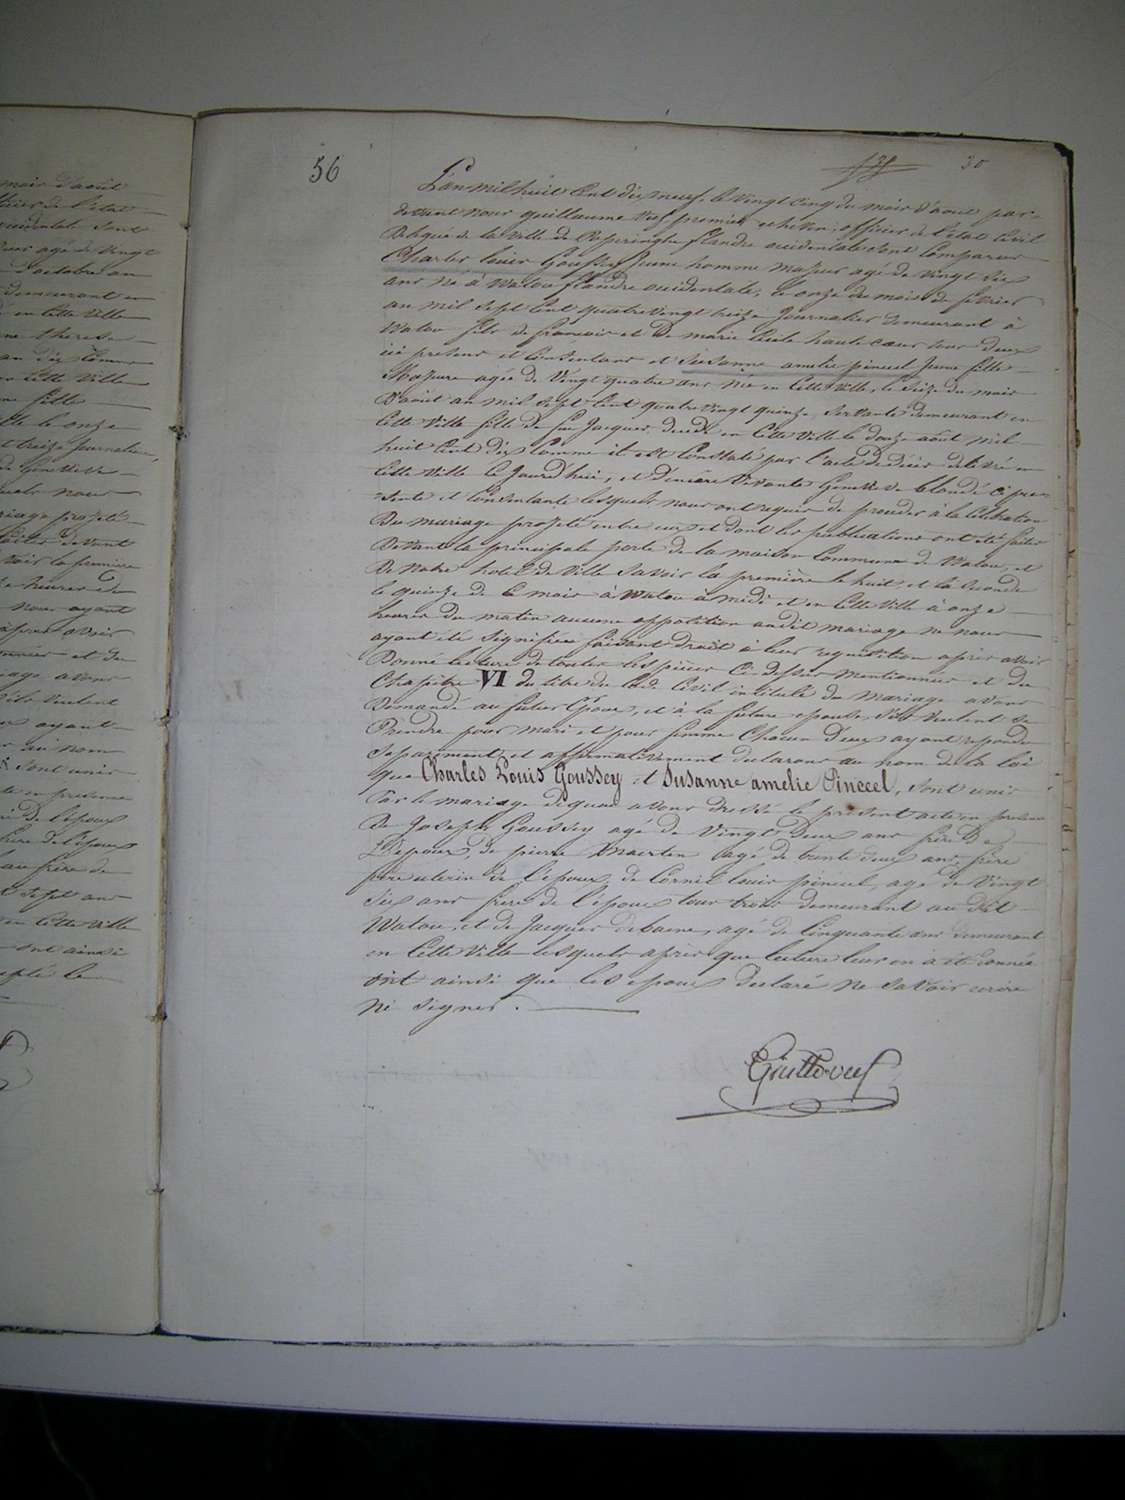 mois d'août
l'état
occidentale sont
agé de vingt
d'octobre an
demeurant en
en cette ville
therese
cette ville
fille
le onze
treize journalier
nous
mariage projeté
devant
la première
heures du
nous ayant
avoir
et du
avons
veulent
ayant
au nom
sont unis
en presence
de l'époux
de l'épouse
frère de
sept ans
en cette ville
ont ainsi
56
30
L'an mil huit cent dix neuf, le vingt cinq du mois d'aout par-
devant nous guillaume Vief, premier echevin, officier de l'état Civil
Delégué de la Ville de Poperinghe flandre occidentale sont Comparus
Charles louis Goussey Jeune homme Majeur agé de vingt six
ans né à Watou flandre occidentale, le onze du mois de fevrier
an mil sept Cent quatre vingt treize Journalier demeurant à
Watou fils de francois et de marie Cecile hautecoeur tous deux
ici presens et Consentans et Susanne amelie pinceel Jeune fille
Majeure agée de Vingt quatre ans née en Cette Ville, le Seize du mois
D'aoüt an mil sept Cent quatre vingt quinze, Servante demeurant en
Cette Ville fille de feu Jacques decedé en Cette Ville le douze août mil
huit Cent dix Comme il est Constaté par l'acte de décès delivré en
Cette Ville Ce Jourd'hui, et d'encore Vivante Genevieve Claudé Ci pre-
-sente et Consentante lesquels nous ont requis de proceder à la Celebration
Du mariage projeté entre eux et dont les publications ont été faites
Devant la principale porte de la maison Commune de Watou, et
De Notre hotel de Ville Savoir la première le huit, et la seconde
le quinze de Ce mois à Watou à midi et en Cette Ville à onze
heures du matin aucune opposition audit mariage ne nous
ayant été signifiée faisant droit à leur requisition après avoir
Donné lecture de toutes les pièces Ci dessus mentionnées et du
Chapitre VI du titre du Code Civil intitulé du mariage avons
Demandé au futur Epoux, et à la future epouse s'ils veulent se
Prendre pour mari et pour femme Chacun D'eux ayant repondu
Separement et affirmativement declarons au nom de la loi
que Charles Louis Goussey et Susanne amelie Pinceel, sont unis
Par le mariage De quoi avons dressé le present acte en presence
De Joseph Goussey agé de Vingt Deux ans frère De
L'époux, de pierre Maerten agé de trente deux ans frère
frère uterin de l'époux, de Cornil louis pinceel, agé de Vingt
Six ans frere de l'épouse tous trois demeurant au dit
Watou, et de Jacques debaene, agé de Cinquante ans demeurant
en Cette Ville lesquels après que lecture leur en a été donnée
ont ainsi que les epoux declaré ne savoir ecrire
ni signer.
Guille Vief